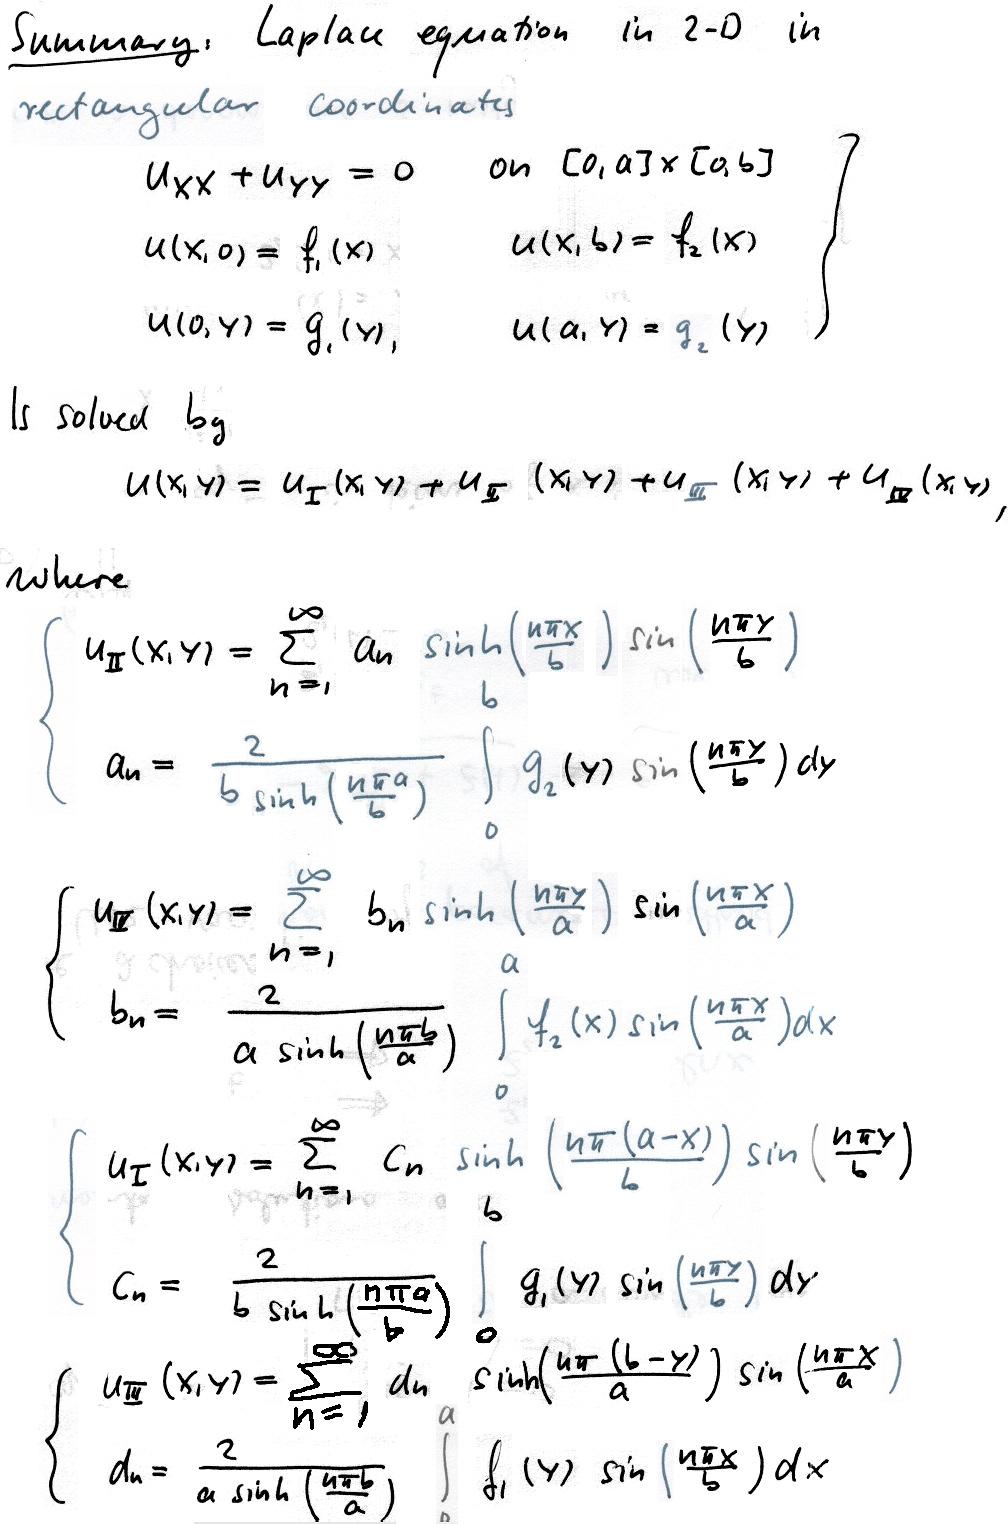 Summary: Laplace equation in 2-D in
rectangular coordinates
u_xx + u_yy = 0 on [0,a]×[0,b]
u(x,0) = f₁(x) u(x,b) = f₂(x)
u(0,y) = g₁(y), u(a,y) = g₂(y)
Is solved by
u(x,y) = u_I(x,y) + u_II(x,y) + u_III(x,y) + u_IV(x,y),
where
u_II(x,y) = ∑_{n=1}^{∞} a_n sinh(nπx/b) sin(nπy/b)
a_n = 2/(b sinh(nπa/b)) ∫_0^b g₂(y) sin(nπy/b) dy
u_IV(x,y) = ∑_{n=1}^{∞} b_n sinh(nπy/a) sin(nπx/a)
b_n = 2/(a sinh(nπb/a)) ∫_0^a f₂(x) sin(nπx/a) dx
u_I(x,y) = ∑_{n=1}^{∞} c_n sinh(nπ(a-x)/b) sin(nπy/b)
c_n = 2/(b sinh(nπa/b)) ∫_0^b g₁(y) sin(nπy/b) dy
u_III(x,y) = ∑_{n=1}^{∞} d_n sinh(nπ(b-y)/a) sin(nπx/a)
d_n = 2/(a sinh(nπb/a)) ∫_0^a f₁(y) sin(nπx/b) dx